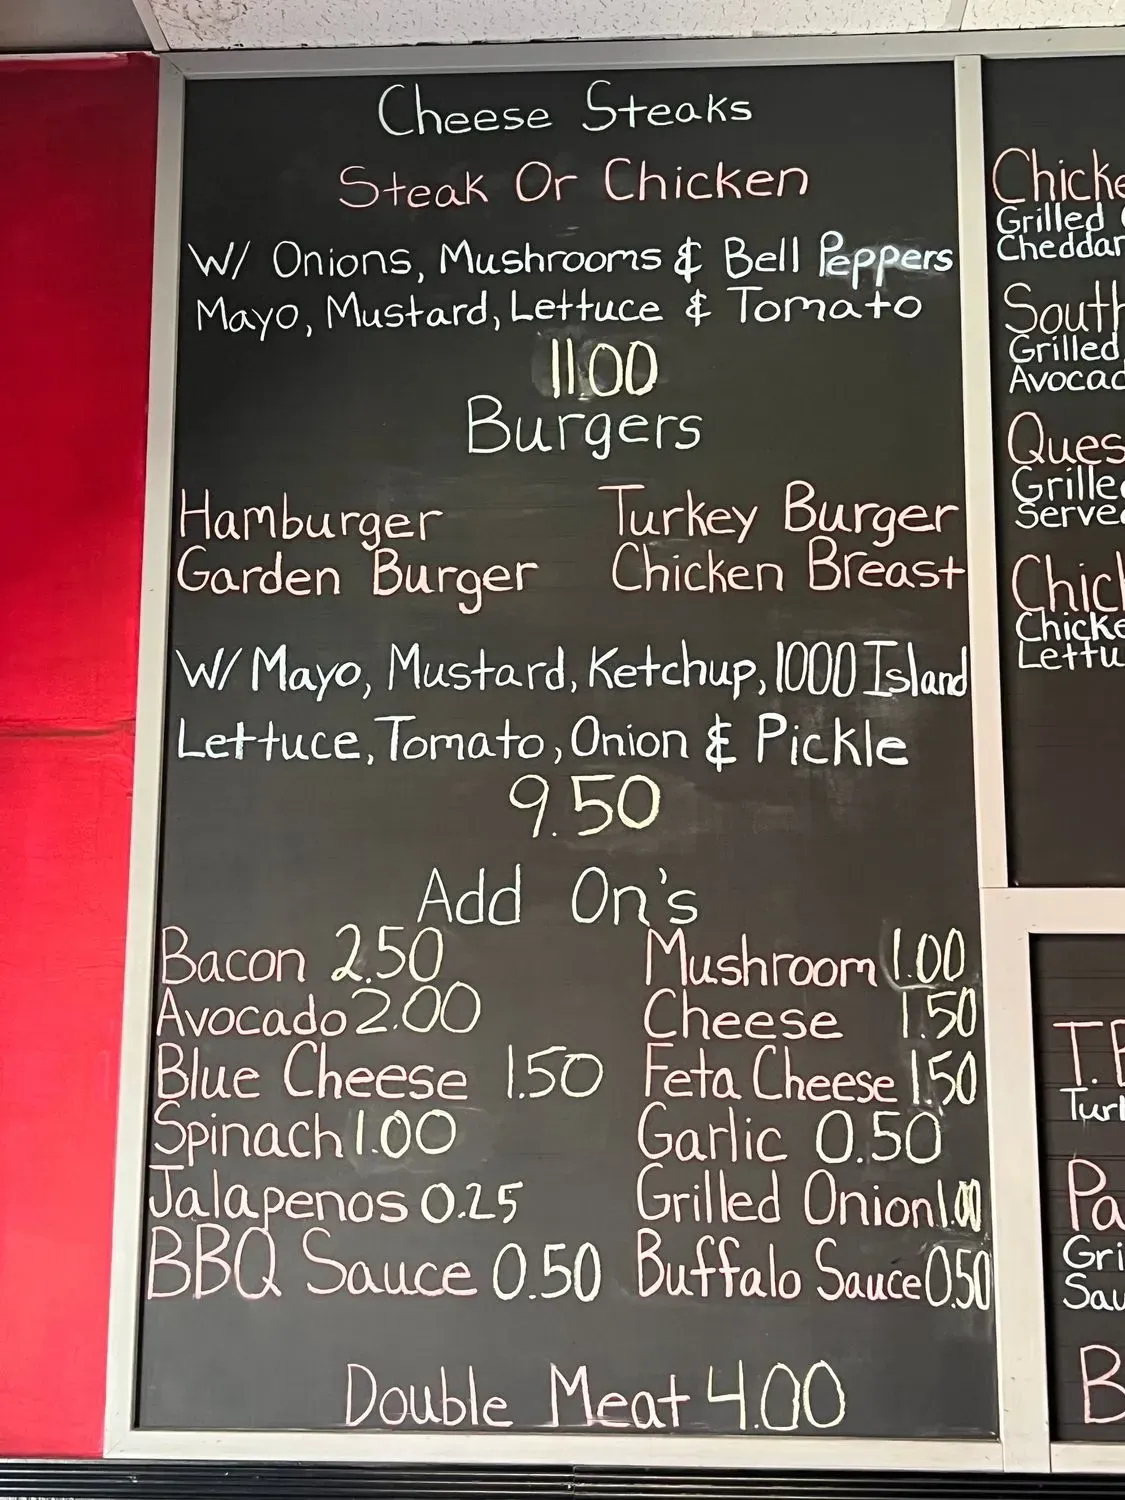 Cheese Steaks
Steak Or Chicken
W/ Onions, Mushrooms & Bell Peppers
Mayo, Mustard, Lettuce & Tomato
11.00
Burgers
Hamburger Turkey Burger
Garden Burger Chicken Breast
W/ Mayo, Mustard, Ketchup, 1000 Island
Lettuce, Tomato, Onion & Pickle
9.50
Add On's
Bacon 2.50 Mushroom 1.00
Avocado 2.00 Cheese 1.50
Blue Cheese 1.50 Feta Cheese 1.50
Spinach 1.00 Garlic 0.50
Jalapenos 0.25 Grilled Onion 1.00
BBQ Sauce 0.50 Buffalo Sauce 0.50
Double Meat 4.00
Chicke
Grilled
Cheddar
South
Grilled
Avocad
Ques
Grille
Serve
Chic
Chicke
Lettu
T.B
Turk
Pa
Gri
Sau
B